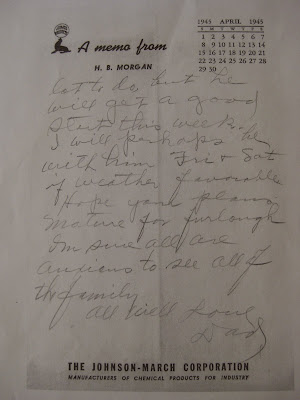 1945 APRIL 1945
S M T W T F S
1 2 3 4 5 6 7
8 9 10 11 12 13 14
15 16 17 18 19 20 21
22 23 24 25 26 27 28
29 30
A memo from
H. B. MORGAN
lot to do, but he
will get a good
start this week.
I will perhaps be
with him Fri & Sat
if weather favorable
Hope your plans
mature for furlough
Im sure all are
anxious to see all of
the family
All well Love
Dad
THE JOHNSON-MARCH CORPORATION
MANUFACTURERS OF CHEMICAL PRODUCTS FOR INDUSTRY